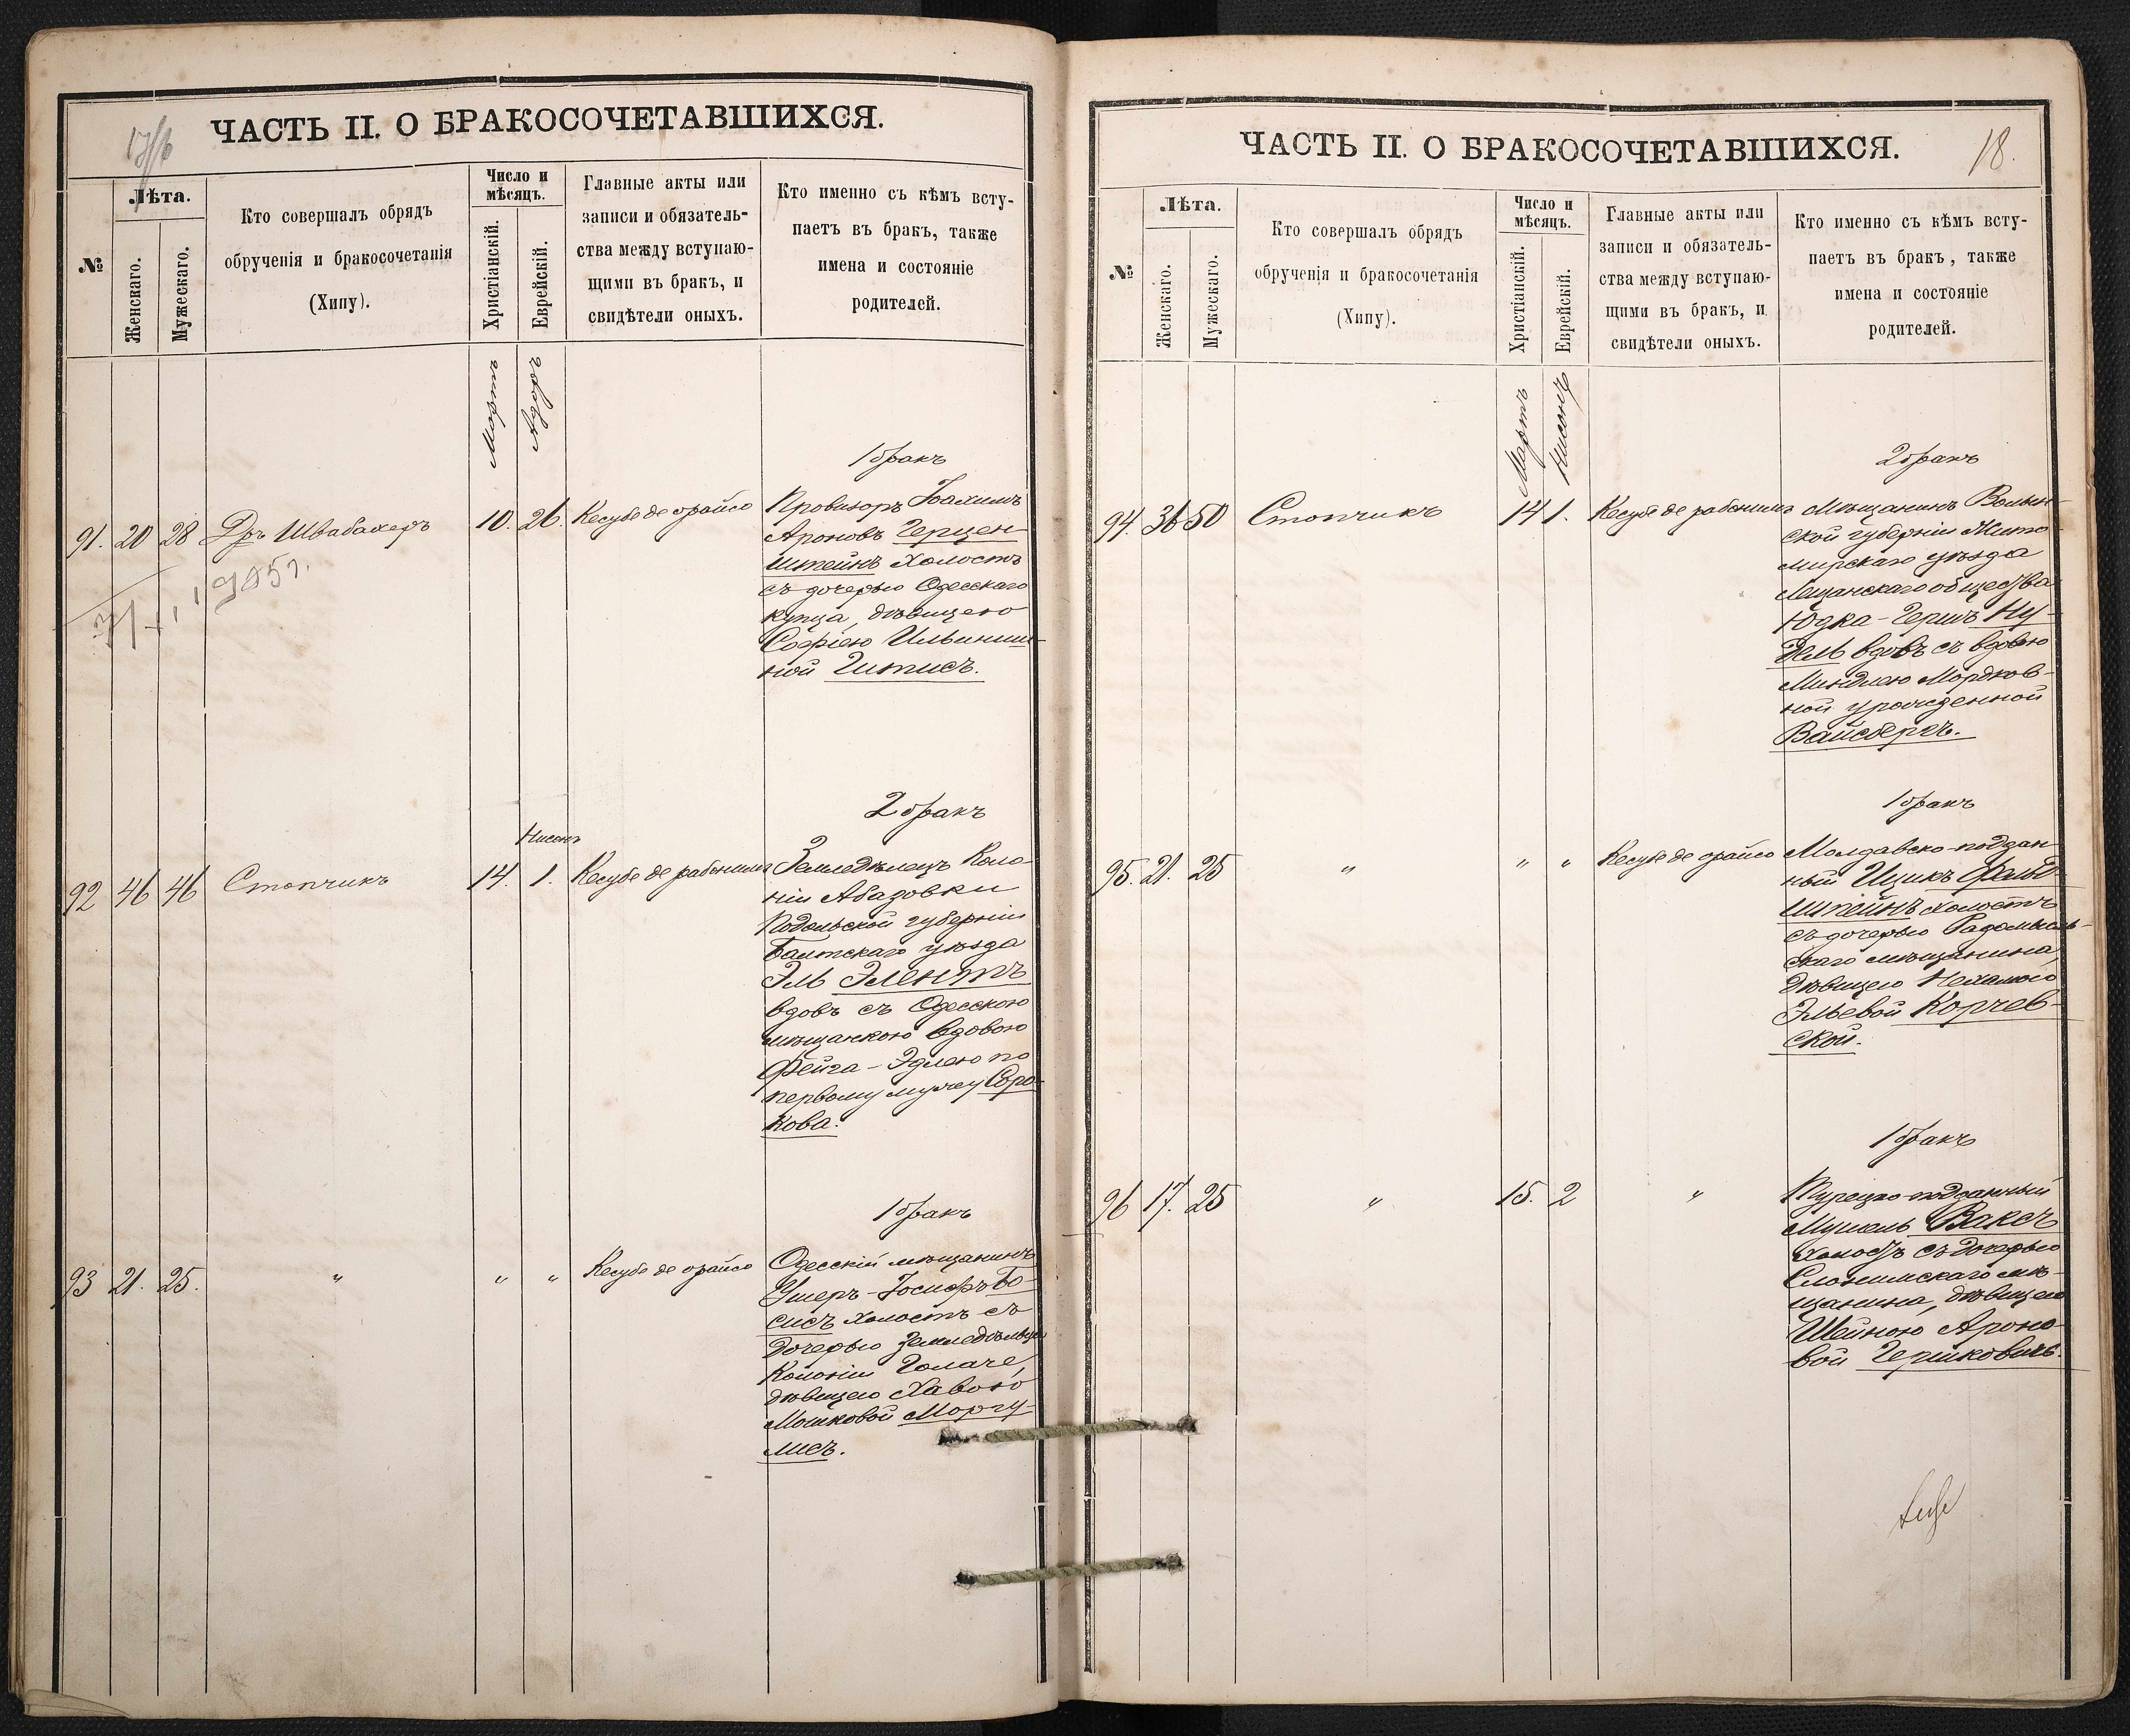 ЧАСТЬ II. О БРАКОСОЧЕТАВШИХСЯ.
№
Лѣта.
Женскаго.
Мужескаго.
Кто совершалъ обрядъ
обрученія и бракосочетанія
(Хипу).
Число и
мѣсяцъ.
Христіанскій.
Еврейскій.
Главные акты или
записи и обязатель-
ства между вступаю-
щими въ бракъ, и
свидѣтели оныхъ.
Кто именно съ кѣмъ всту-
паетъ въ бракъ, также
имена и состояніе
родителей.
Мартъ
Адаръ
1 бракъ
91. 20 28 Др. Швабахеръ 10. 26. Кесубе де орайсо
Провизоръ Іоахимъ
Ароновъ Герцен-
штейнъ холостъ
съ дочерью Одесскаго
купца, дѣвицею
Софіею Ильинич-
ной Гитисъ.
2 бракъ
Нисонъ
92 46 46 Стопчикъ 14. 1. Кесубе де рабонинъ
Земледѣлецъ Коло-
ніи Абазовки
Подольской губерніи
Балтскаго уѣзда
Эль Элентъ
вдовъ съ Одесскою
мѣщанкою вдовою
Фейга-Эдлею по
первому мужу Соро-
кова.
1 бракъ
93 21. 25. " " " Кесубе де орайсо
Одесскій мѣщанинъ
Ушеръ-Іосифъ Бо-
сисъ холостъ съ
дочерью земледѣльца
Колоніи Голаче,
дѣвицею Хавою
Мошковой Моргу-
лисъ.
ЧАСТЬ II. О БРАКОСОЧЕТАВШИХСЯ.
18.
№
Лѣта.
Женскаго.
Мужескаго.
Кто совершалъ обрядъ
обрученія и бракосочетанія
(Хипу).
Число и
мѣсяцъ.
Христіанскій.
Еврейскій.
Главные акты или
записи и обязатель-
ства между вступаю-
щими въ бракъ, и
свидѣтели оныхъ.
Кто именно съ кѣмъ всту-
паетъ въ бракъ, также
имена и состояніе
родителей.
Мартъ
Нисонъ
2 бракъ
94. 36 50 Стопчикъ 14 1. Кесубе де рабонинъ
Мѣщанинъ Волын-
ской губерніи Жито-
мирскаго уѣзда
общества
Юдка-Гершъ Ну-
дель вдовъ съ вдовою
Миндлею Мордков-
ной урожденной
Вайсбергъ.
1 бракъ
95. 21. 25 " " " Кесубе де орайсо
Молдавско-поддан
ный Ицикъ Фальб
штейнъ холостъ
съ дочерью Радомысль-
скаго мѣщанина,
дѣвицею Нехамою
Эльевой Корчев-
ской.
1 бракъ
96 17. 25 " 15. 2 "
Турецко-подданный
Мушель Ваксъ
холостъ съ дочерью
Слонимскаго мѣ-
щанина, дѣвицею
Шейною Ароно-
вой Гершковичъ.